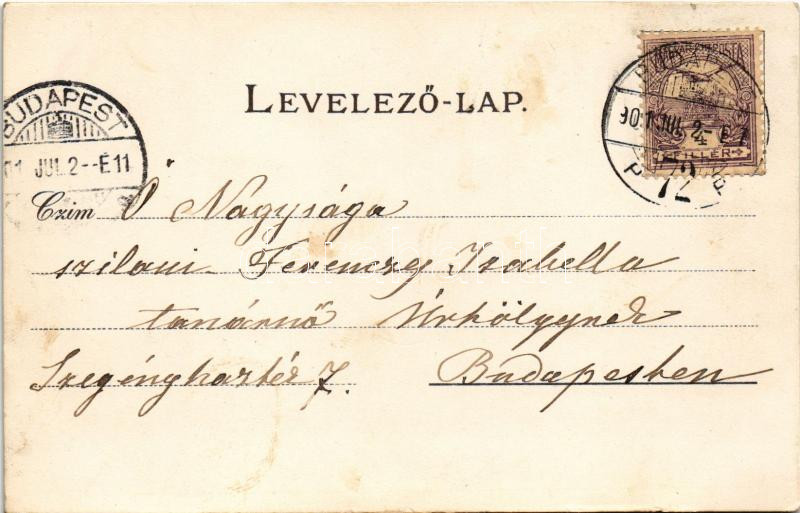 LEVELEZŐ-LAP.
BUDAPEST
901 JUL 2 - É 7
FILLÉR
72
BUDAPEST
01 JUL 2 - É 11
Czim Ő Nagysága
szilasi Ferenczy Izabella
tanárnő Úrhölgynek
Szegényháztér 7. Budapesten